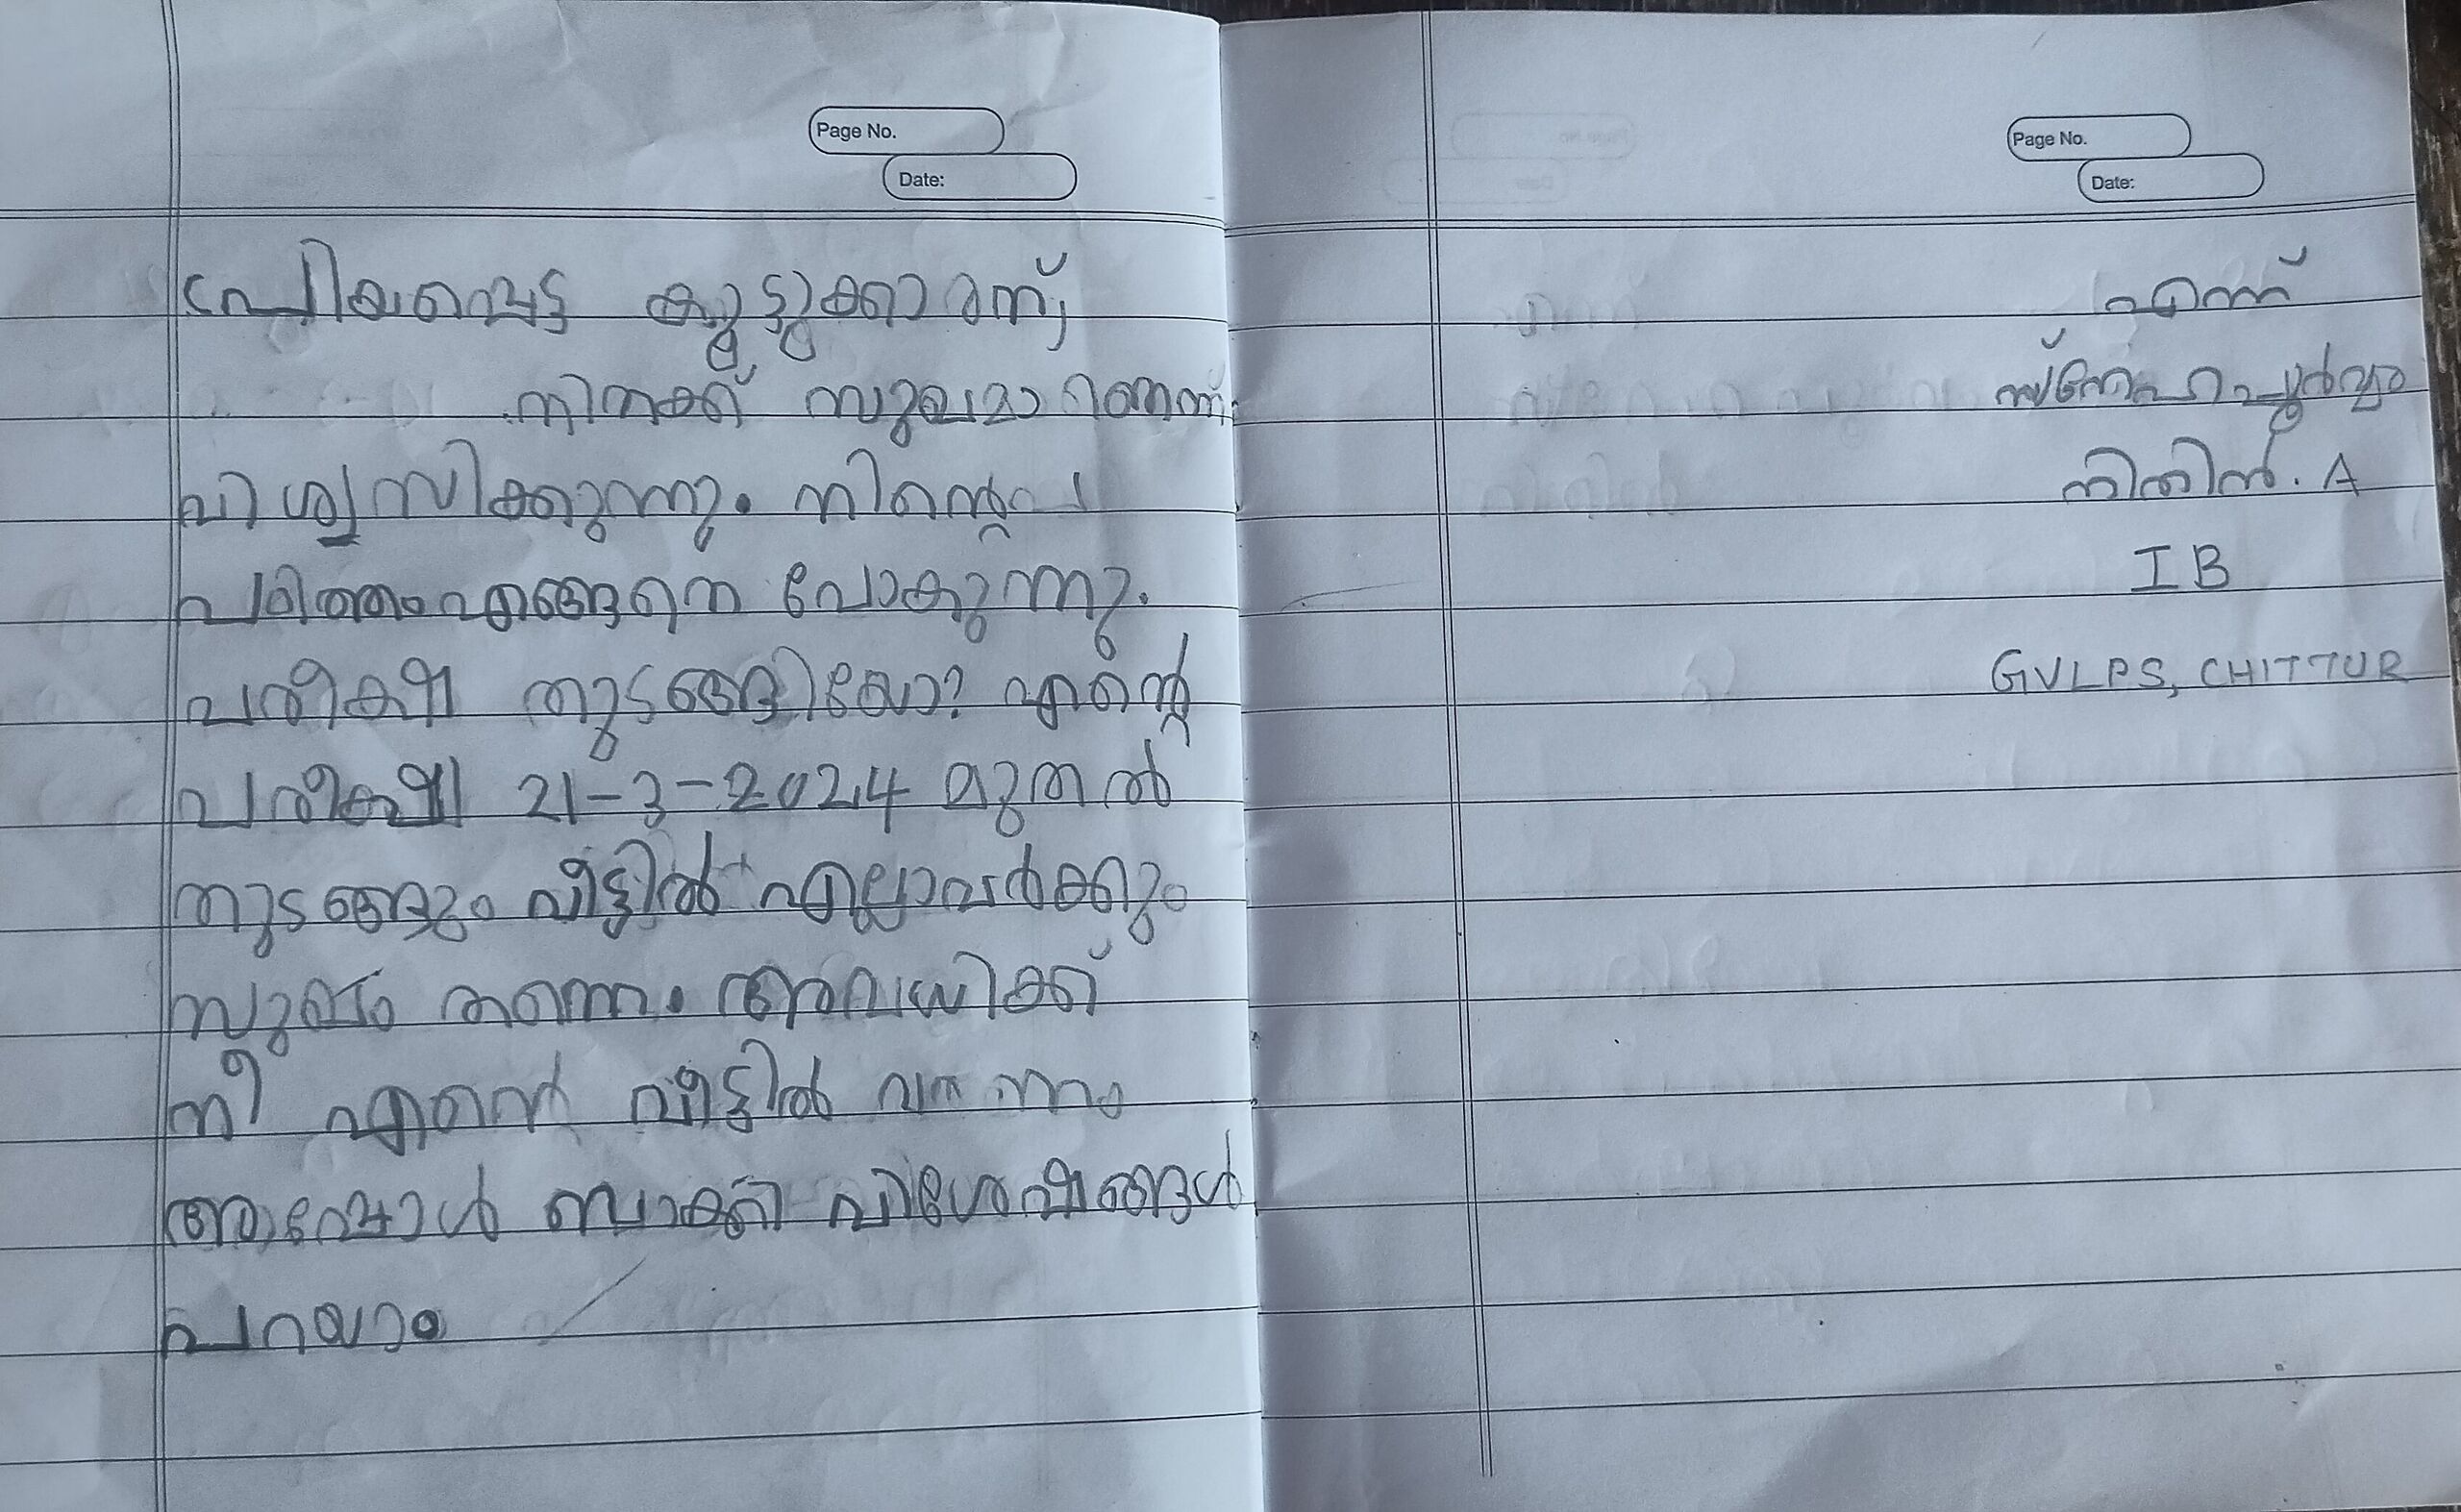 Page No.
Date:
പ്രിയപ്പെട്ട കൂട്ടുക്കാരന്,
നിനക്ക് സുഖമാണെന്ന്
വിശ്വസിക്കുന്നു. നിന്റെ
പഠിത്തം എങ്ങെനെ പോകുന്നു.
പരീക്ഷ തുടങ്ങിയോ? എന്റെ
പരീക്ഷ 21-3-2024 മുതൽ
തുടങ്ങും വീട്ടിൽ എല്ലാവർക്കും
സുഖം തന്നെ. അവധിക്ക്
നീ എന്റെ വീട്ടിൽ വരണം
അപ്പോൾ ബാക്കി വിശേഷങ്ങൾ
പറയാം
Page No.
Date:
എന്ന്
സ്നേഹപൂർവ്വം
നിതിൻ. A
I B
GVLPS, CHITTUR